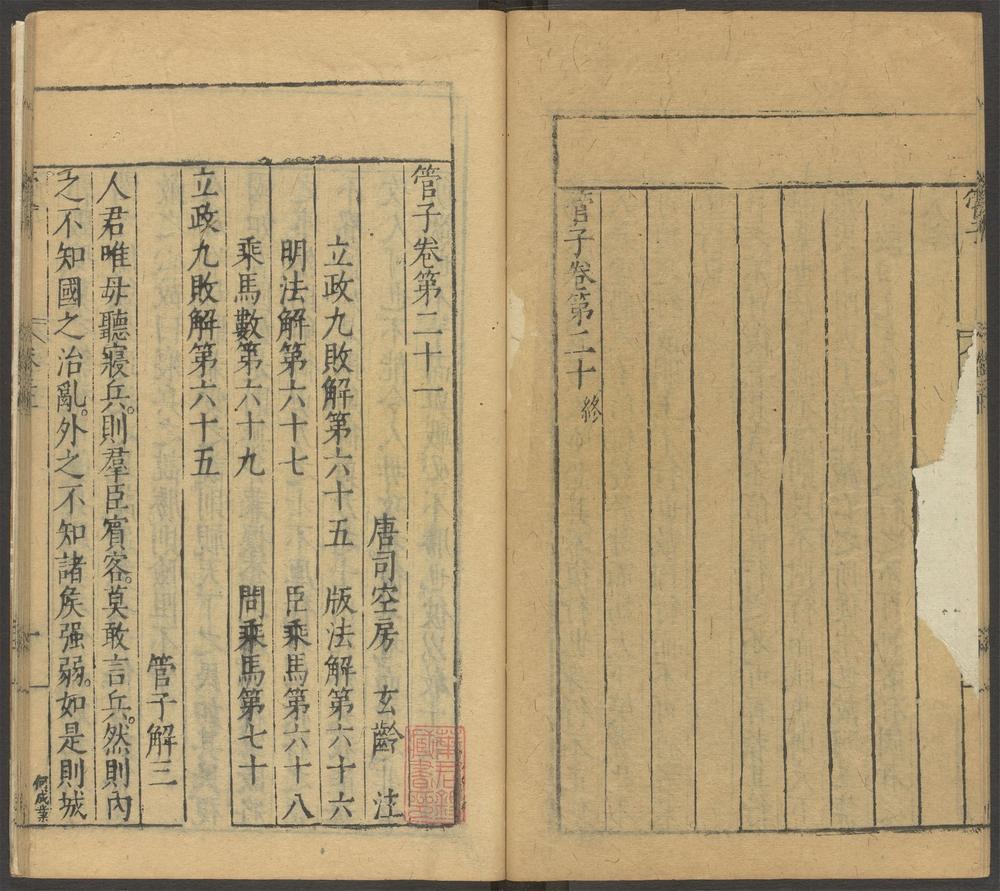 管子卷第二十 終
管子卷第二十一
唐司空房 玄齡 注
立政九敗解第六十五 版法解第六十六
明法解第六十七 臣乘馬第六十八
乘馬數第六十九 問乘馬第七十
立政九敗解第六十五
管子解三
人君唯毋聽寢兵。則羣臣賓客。莫敢言兵。然則內
之不知國之治亂。外之不知諸矦强弱。如是則城
何成業